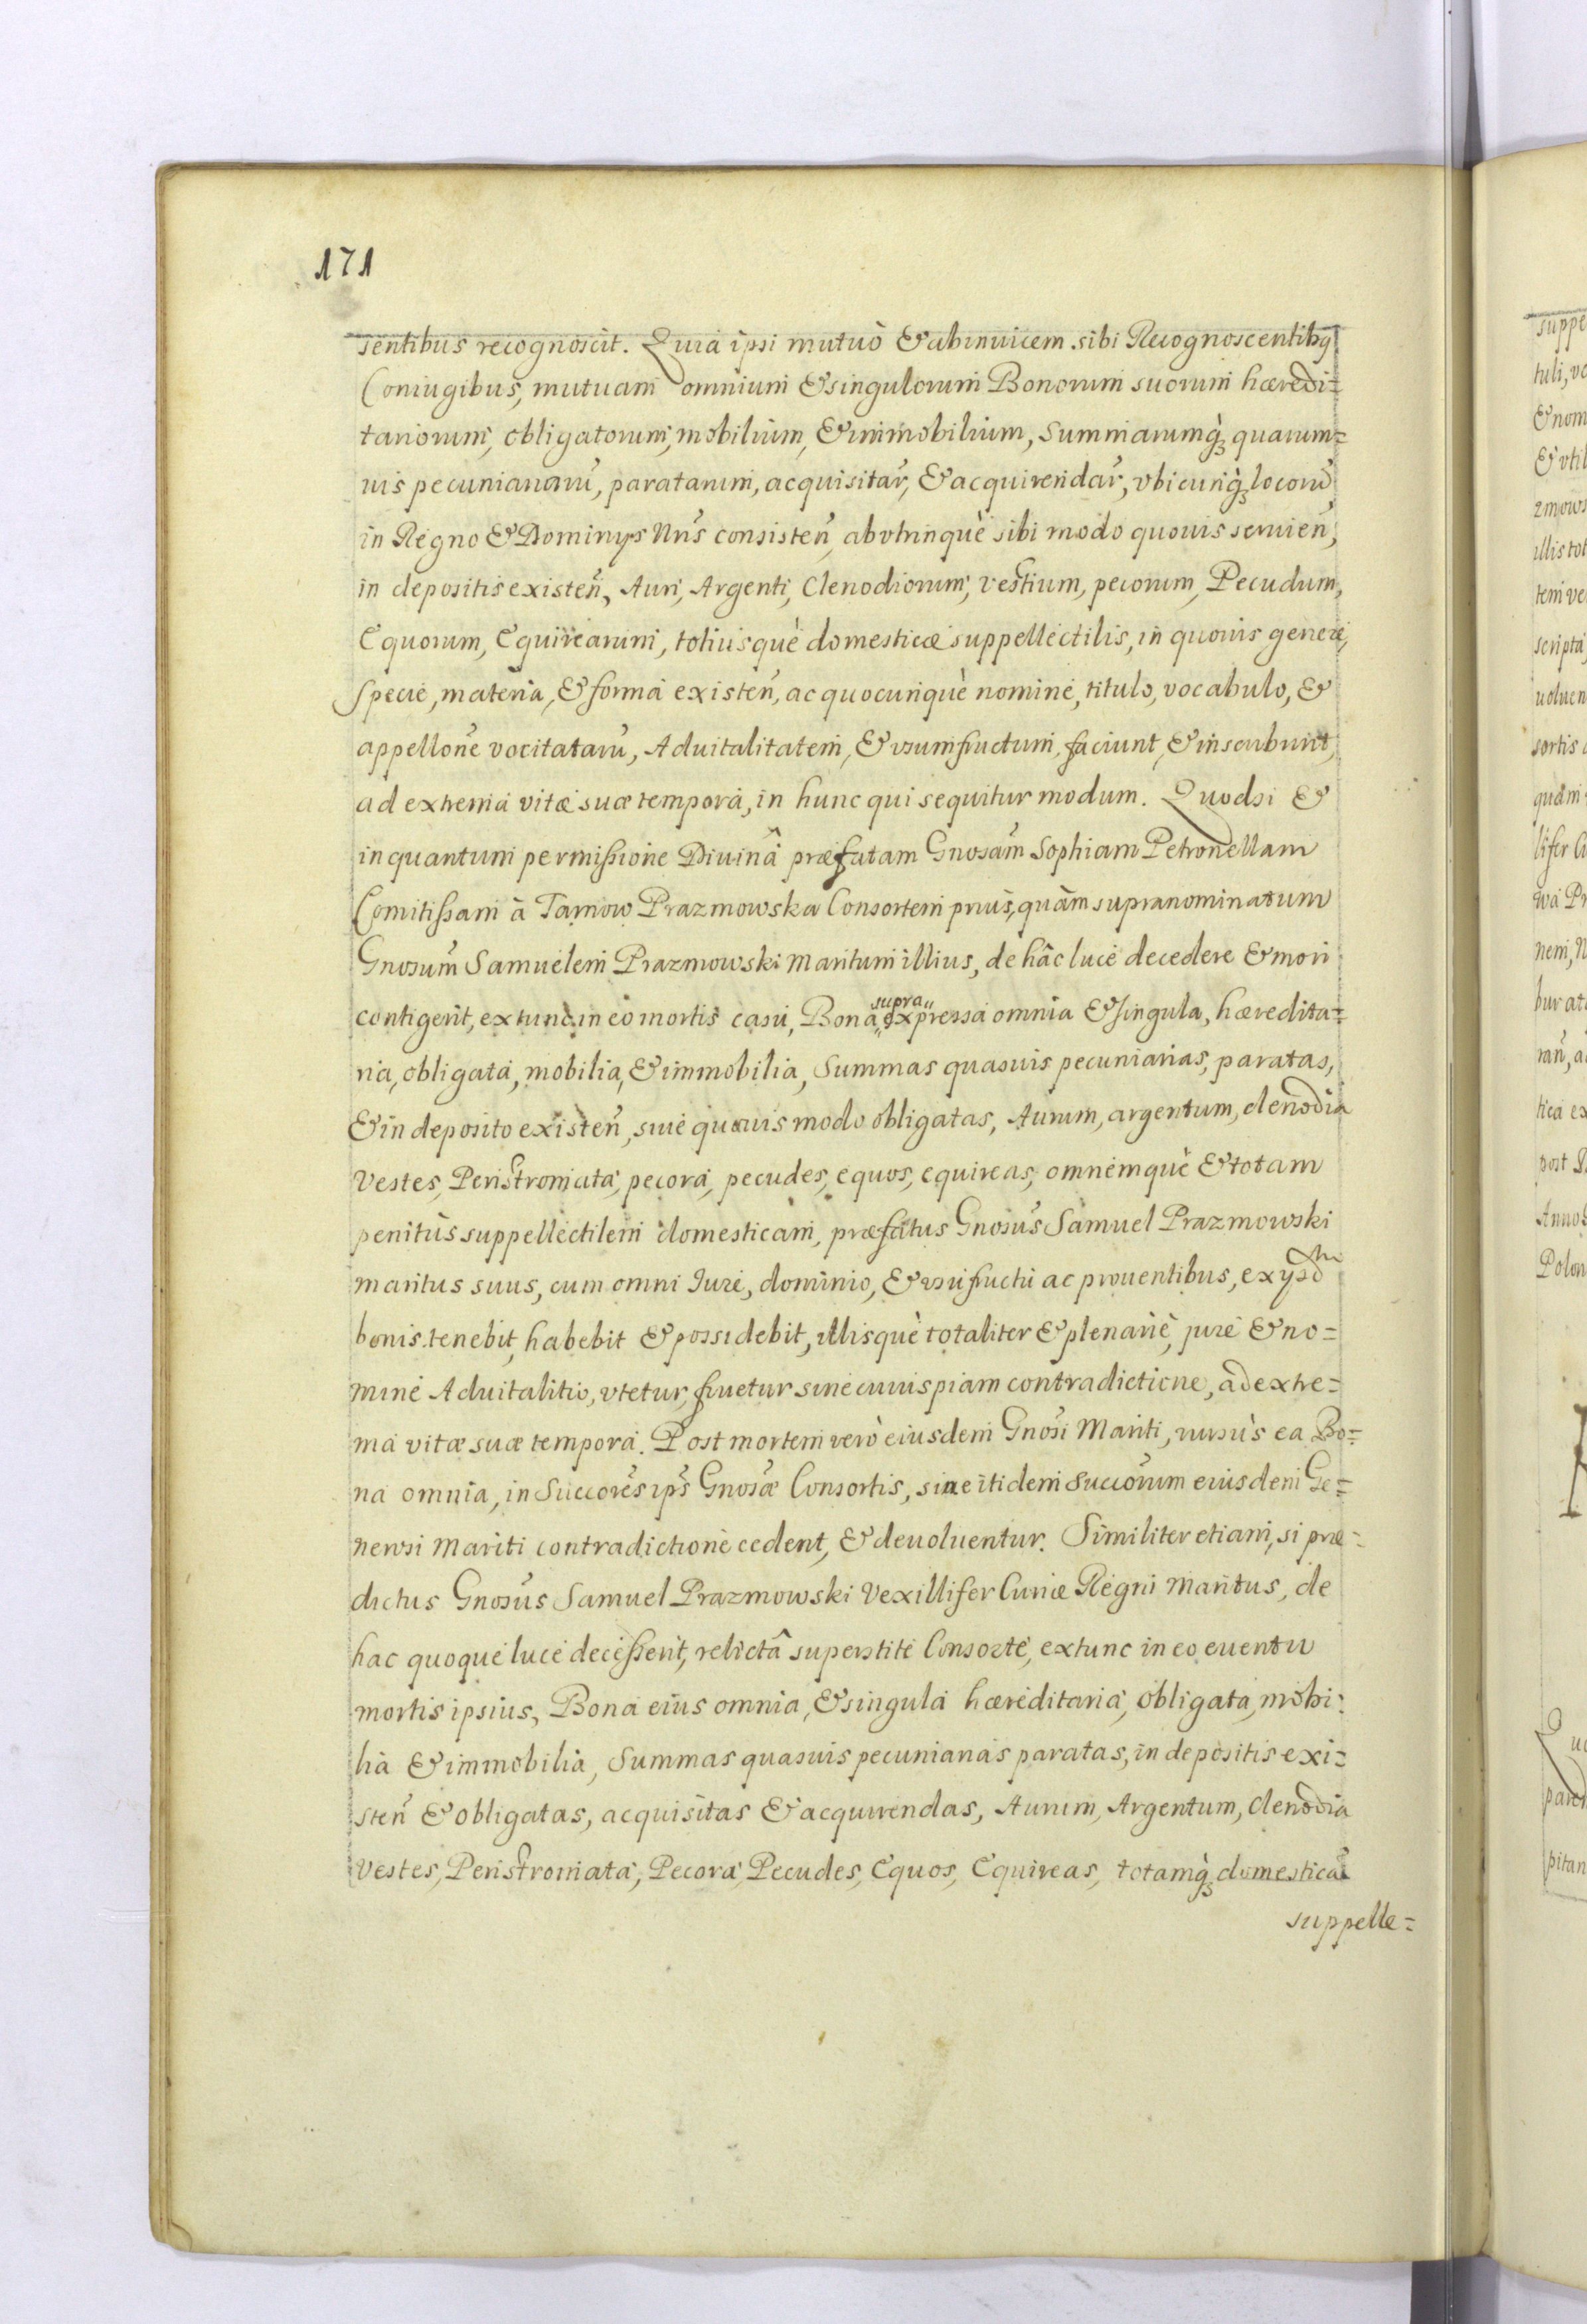 171
sentibus recognoscit. Quia ipsi mutuò & abinuicem sibi Recognoscentibq
Coniugibus, mutuam omnium & singulorum Bonorum suorum hæredi=
tariorum, obligatorum, mobilium, & immobilium, Summarumq́ꝫ quarum=
uis pecuniariarũ, paratarum, acquisitar̃, & acquirendar̃, vbicunq́ꝫ locorũ
in Regno & Dominys Nr̃is consisteñ, abvtrinquè sibi modo quouis seruieñ,
in depositis existeñ, Auri, Argenti, Clenodiorum, vestium, pecorum, Pecudum,
Equorum, Equirearum, totiusquè domesticæ suppellectilis, in quouis genere,
Specie, materia, & forma existeñ, ac quocunquè nomine, titulo, vocabulo, &
appellõne vocitatarũ, Aduitalitatem, & vsumfructum, faciunt, & inscribunt,
ad extrema vitæ suæ tempora, in hunc qui sequitur modum. Quodsi &
inquantum permissione Diuinâ præfatam Gnosam̃ Sophiam Petronellam
Comitissam à Tarnow Prazmowska Consortem priùs, quàm supranominatum
Gnosum̃ Samuelem Prazmowski Maritum illius, de hâc luce decedere & mori
contigerit, extunc in eo mortis casu, Bona supra expressa omnia & singula, hæredita=
ria, obligata, mobilia, & immobilia, Summas quasuis pecuniarias, paratas,
& in deposito existeñ, siue quouis modo obligatas, Aurum, argentum, clenodia
Vestes, Peristromata, pecora, pecudes, equos, equireas, omnemquè & totam
penitùs suppellectilem domesticam, præfatus Gnosus̃ Samuel Prazmowski
maritus suus, cum omni Iure, dominio, & vsufructu ac prouentibus, ex ysdm
bonis tenebit, habebit & possidebit, illisquè totaliter & plenariè, jure & no=
mine Aduitalitio, vtetur, fruetur sine cuiuspiam contradictione, ad extre=
ma vitæ suæ tempora. Post mortem verò eiusdem Gnosĩ Mariti, rursùs ea Bo=
na omnia, in Succorẽs ips̃ Gnosæ̃ Consortis, sine itidem Succorũm eiusdem Ge=
nerosi Mariti contradictione cedent, & deuoluentur. Similiter etiam, si præ=
dictus Gnosus̃ Samuel Prazmowski Vexillifer Curiæ Regni Maritus, de
hac quoque luce decesserit, relictâ superstite Consorte, extunc in eo euentu
mortis ipsius, Bona eius omnia, & singula hæreditaria, obligata, mobi=
lia & immobilia, Summas quasuis pecuniarias paratas, in depositis exi=
steñ & obligatas, acquisitas & acquirendas, Aurum, Argentum, Clenodia
Vestes, Peristromata, Pecora, Pecudes, Equos, Equireas, totamq́ꝫ domesticã
suppelle=